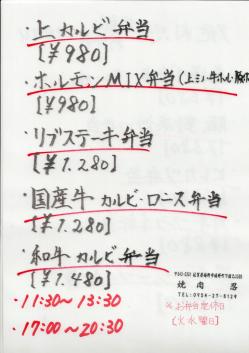 ・上カルビ弁当
[¥980]
・ホルモンMIX弁当(上ミノ・牛ホルモン・豚
[¥980]
・リブステーキ弁当
[¥1.280]
・国産牛 カルビ・ロース弁当
[¥1.280]
・和牛 カルビ 弁当
[¥1.480]
・11:30〜13:30
・17:00〜20:30
焼肉 忍
※お弁当定休日
[火水曜日]